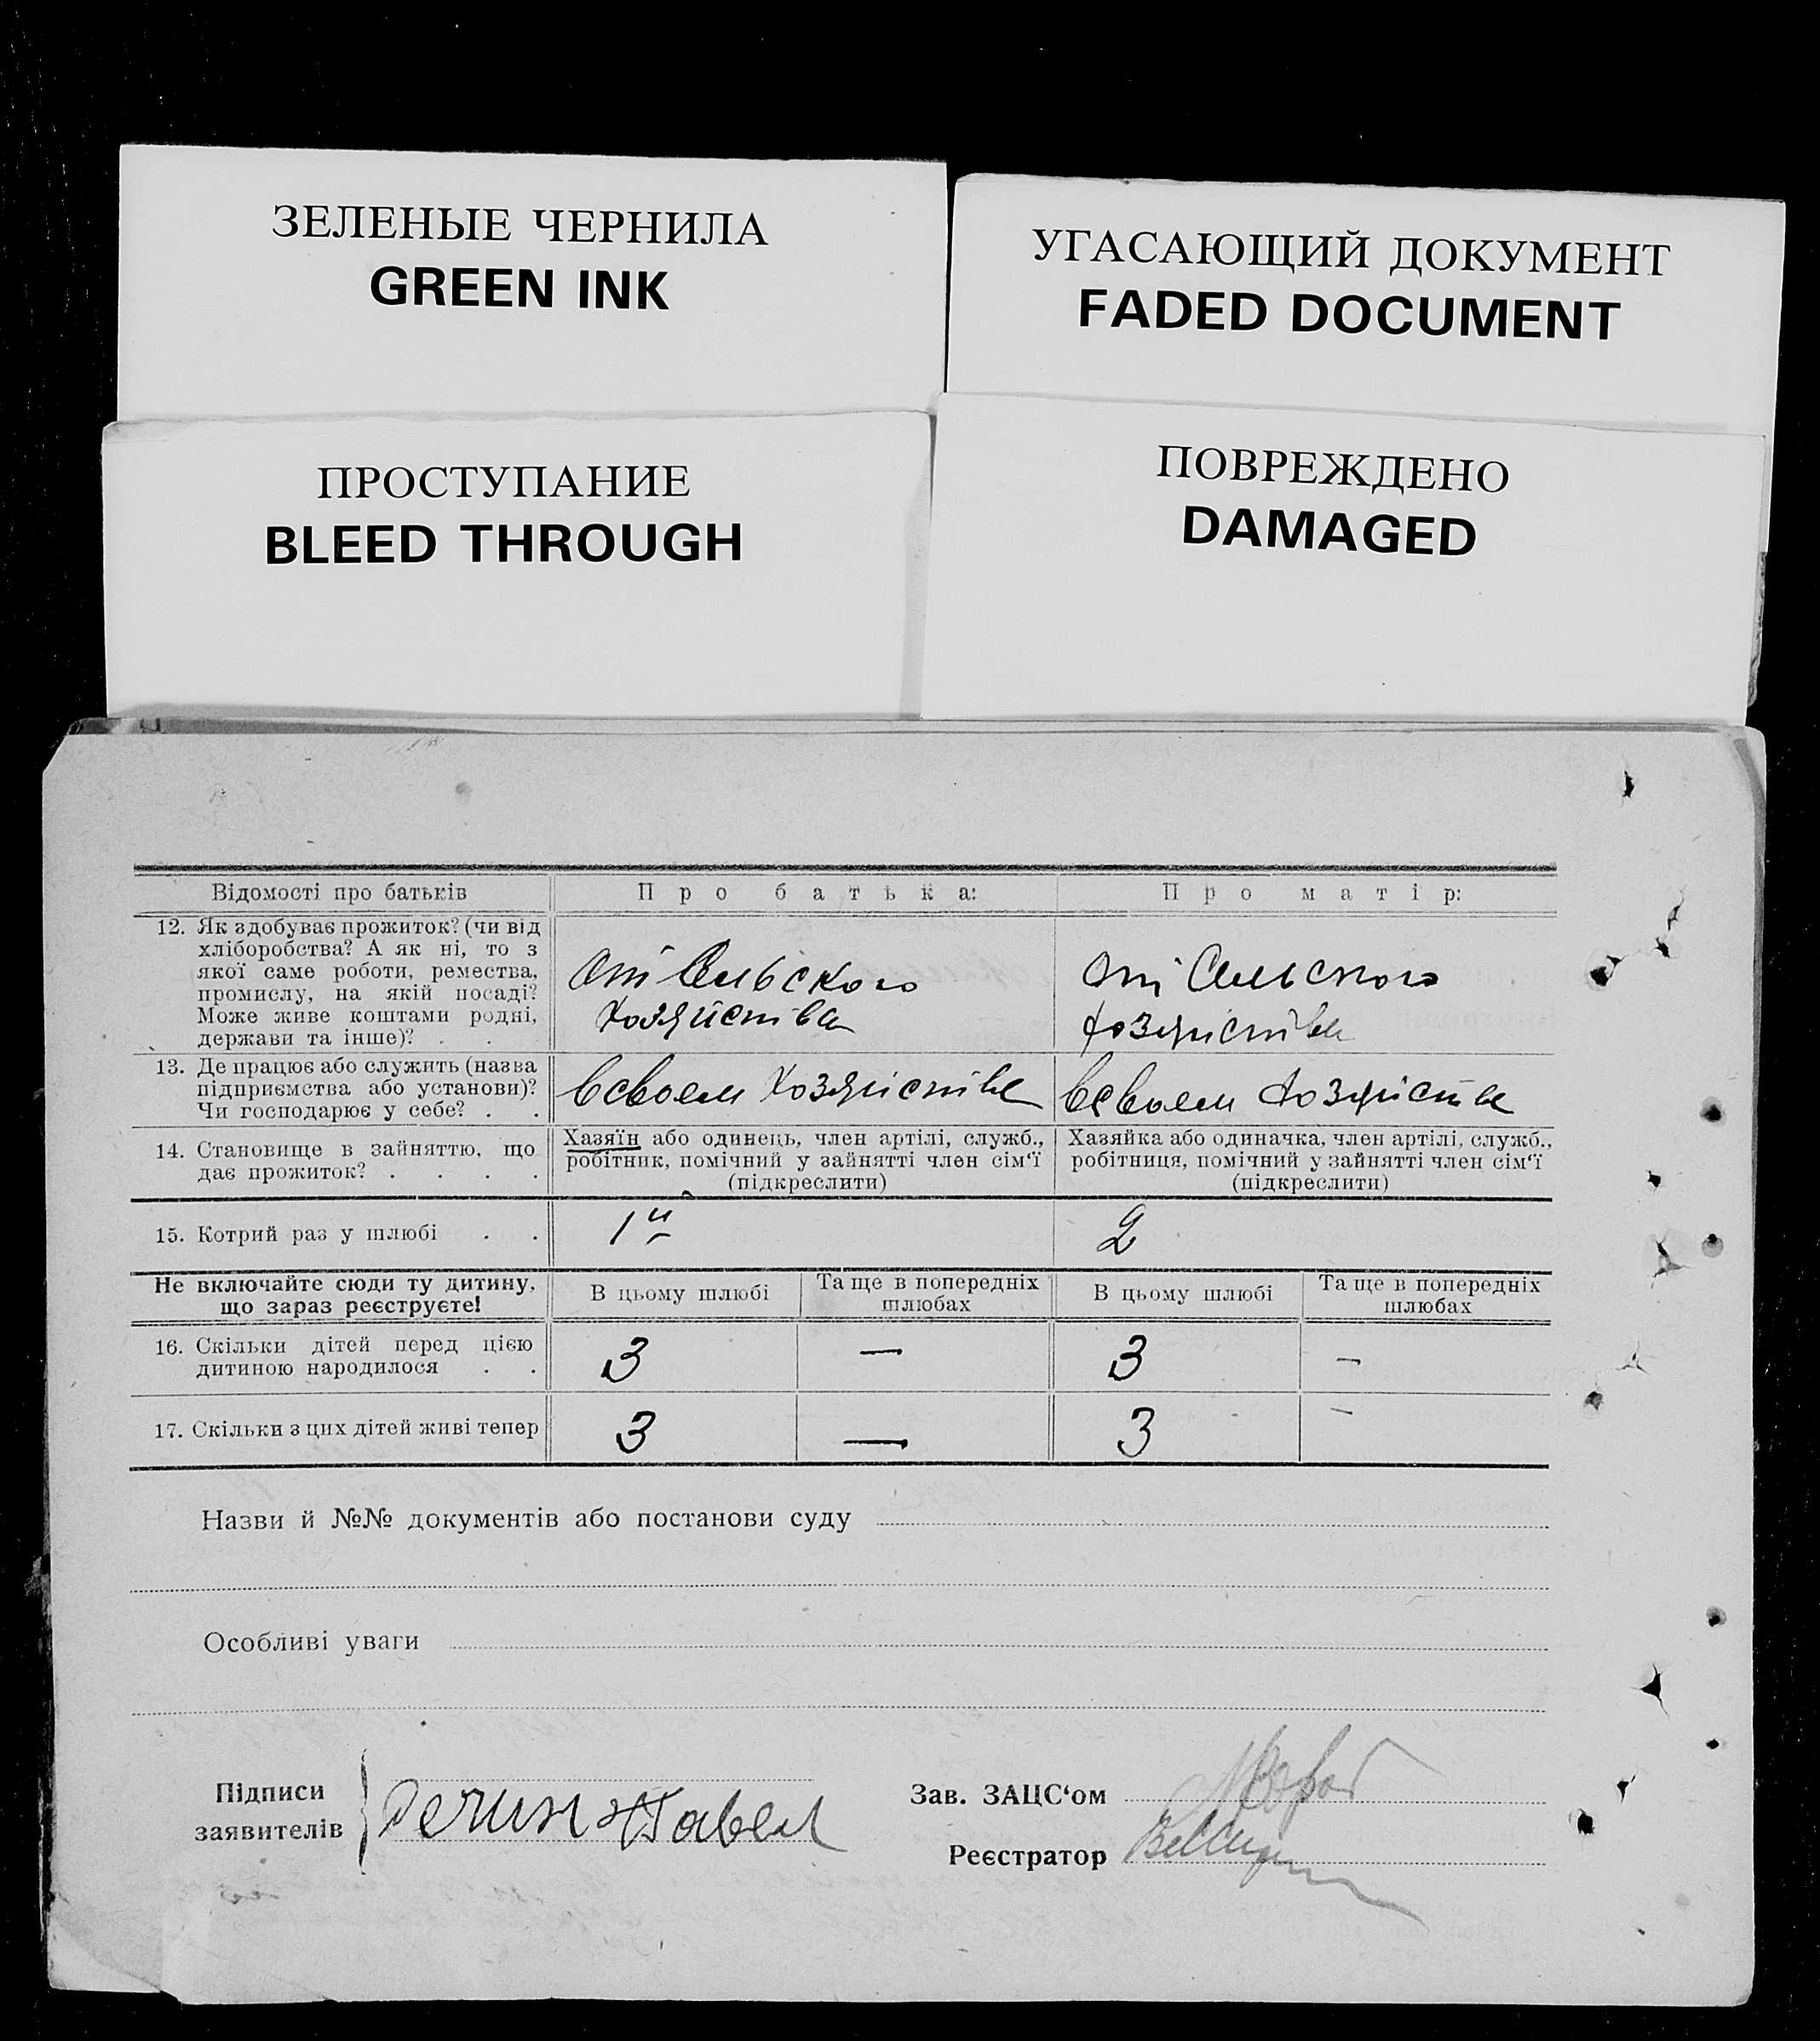 ЗЕЛЕНЫЕ ЧЕРНИЛА
GREEN INK
УГАСАЮЩИЙ ДОКУМЕНТ
FADED DOCUMENT
ПРОСТУПАНИЕ
BLEED THROUGH
ПОВРЕЖДЕНО
DAMAGED
Відомості про батьків
Про батька:
Про матір:
12. Як здобуває прожиток? (чи від
хліборобства? А як ні, то з
якої саме роботи, ремества,
промислу, на якій посаді?
Може живе коштами родні,
держави та інше)? . .
От Сельского
Хозяйства
От Сельского
Хозяйства
13. Де працює або служить (назва
підприємства або установи)?
Чи господарює у себе? . .
В своем Хозяйстве
В своем Хозяйстве
14. Становище в зайняттю, що
дає прожиток? . . . .
Хазяїн або одинець, член артілі, служб.,
робітник, помічний у зайнятті член сім‘ї
(підкреслити)
Хазяйка або одиначка, член артілі, служб.,
робітниця, помічний у зайнятті член сім‘ї
(підкреслити)
15. Котрий раз у шлюбі . .
1й
2
Не включайте сюди ту дитину,
що зараз реєструєте!
В цьому шлюбі
Та ще в попередніх
шлюбах
В цьому шлюбі
Та ще в попередніх
шлюбах
16. Скільки дітей перед цією
дитиною народилося . .
3
—
3
—
17. Скільки з цих дітей живі тепер
3
—
3
—
Назви й №№ документів або постанови суду
Особливі уваги
Підписи
заявителів
Зав. ЗАЦС‘ом
Реєстратор